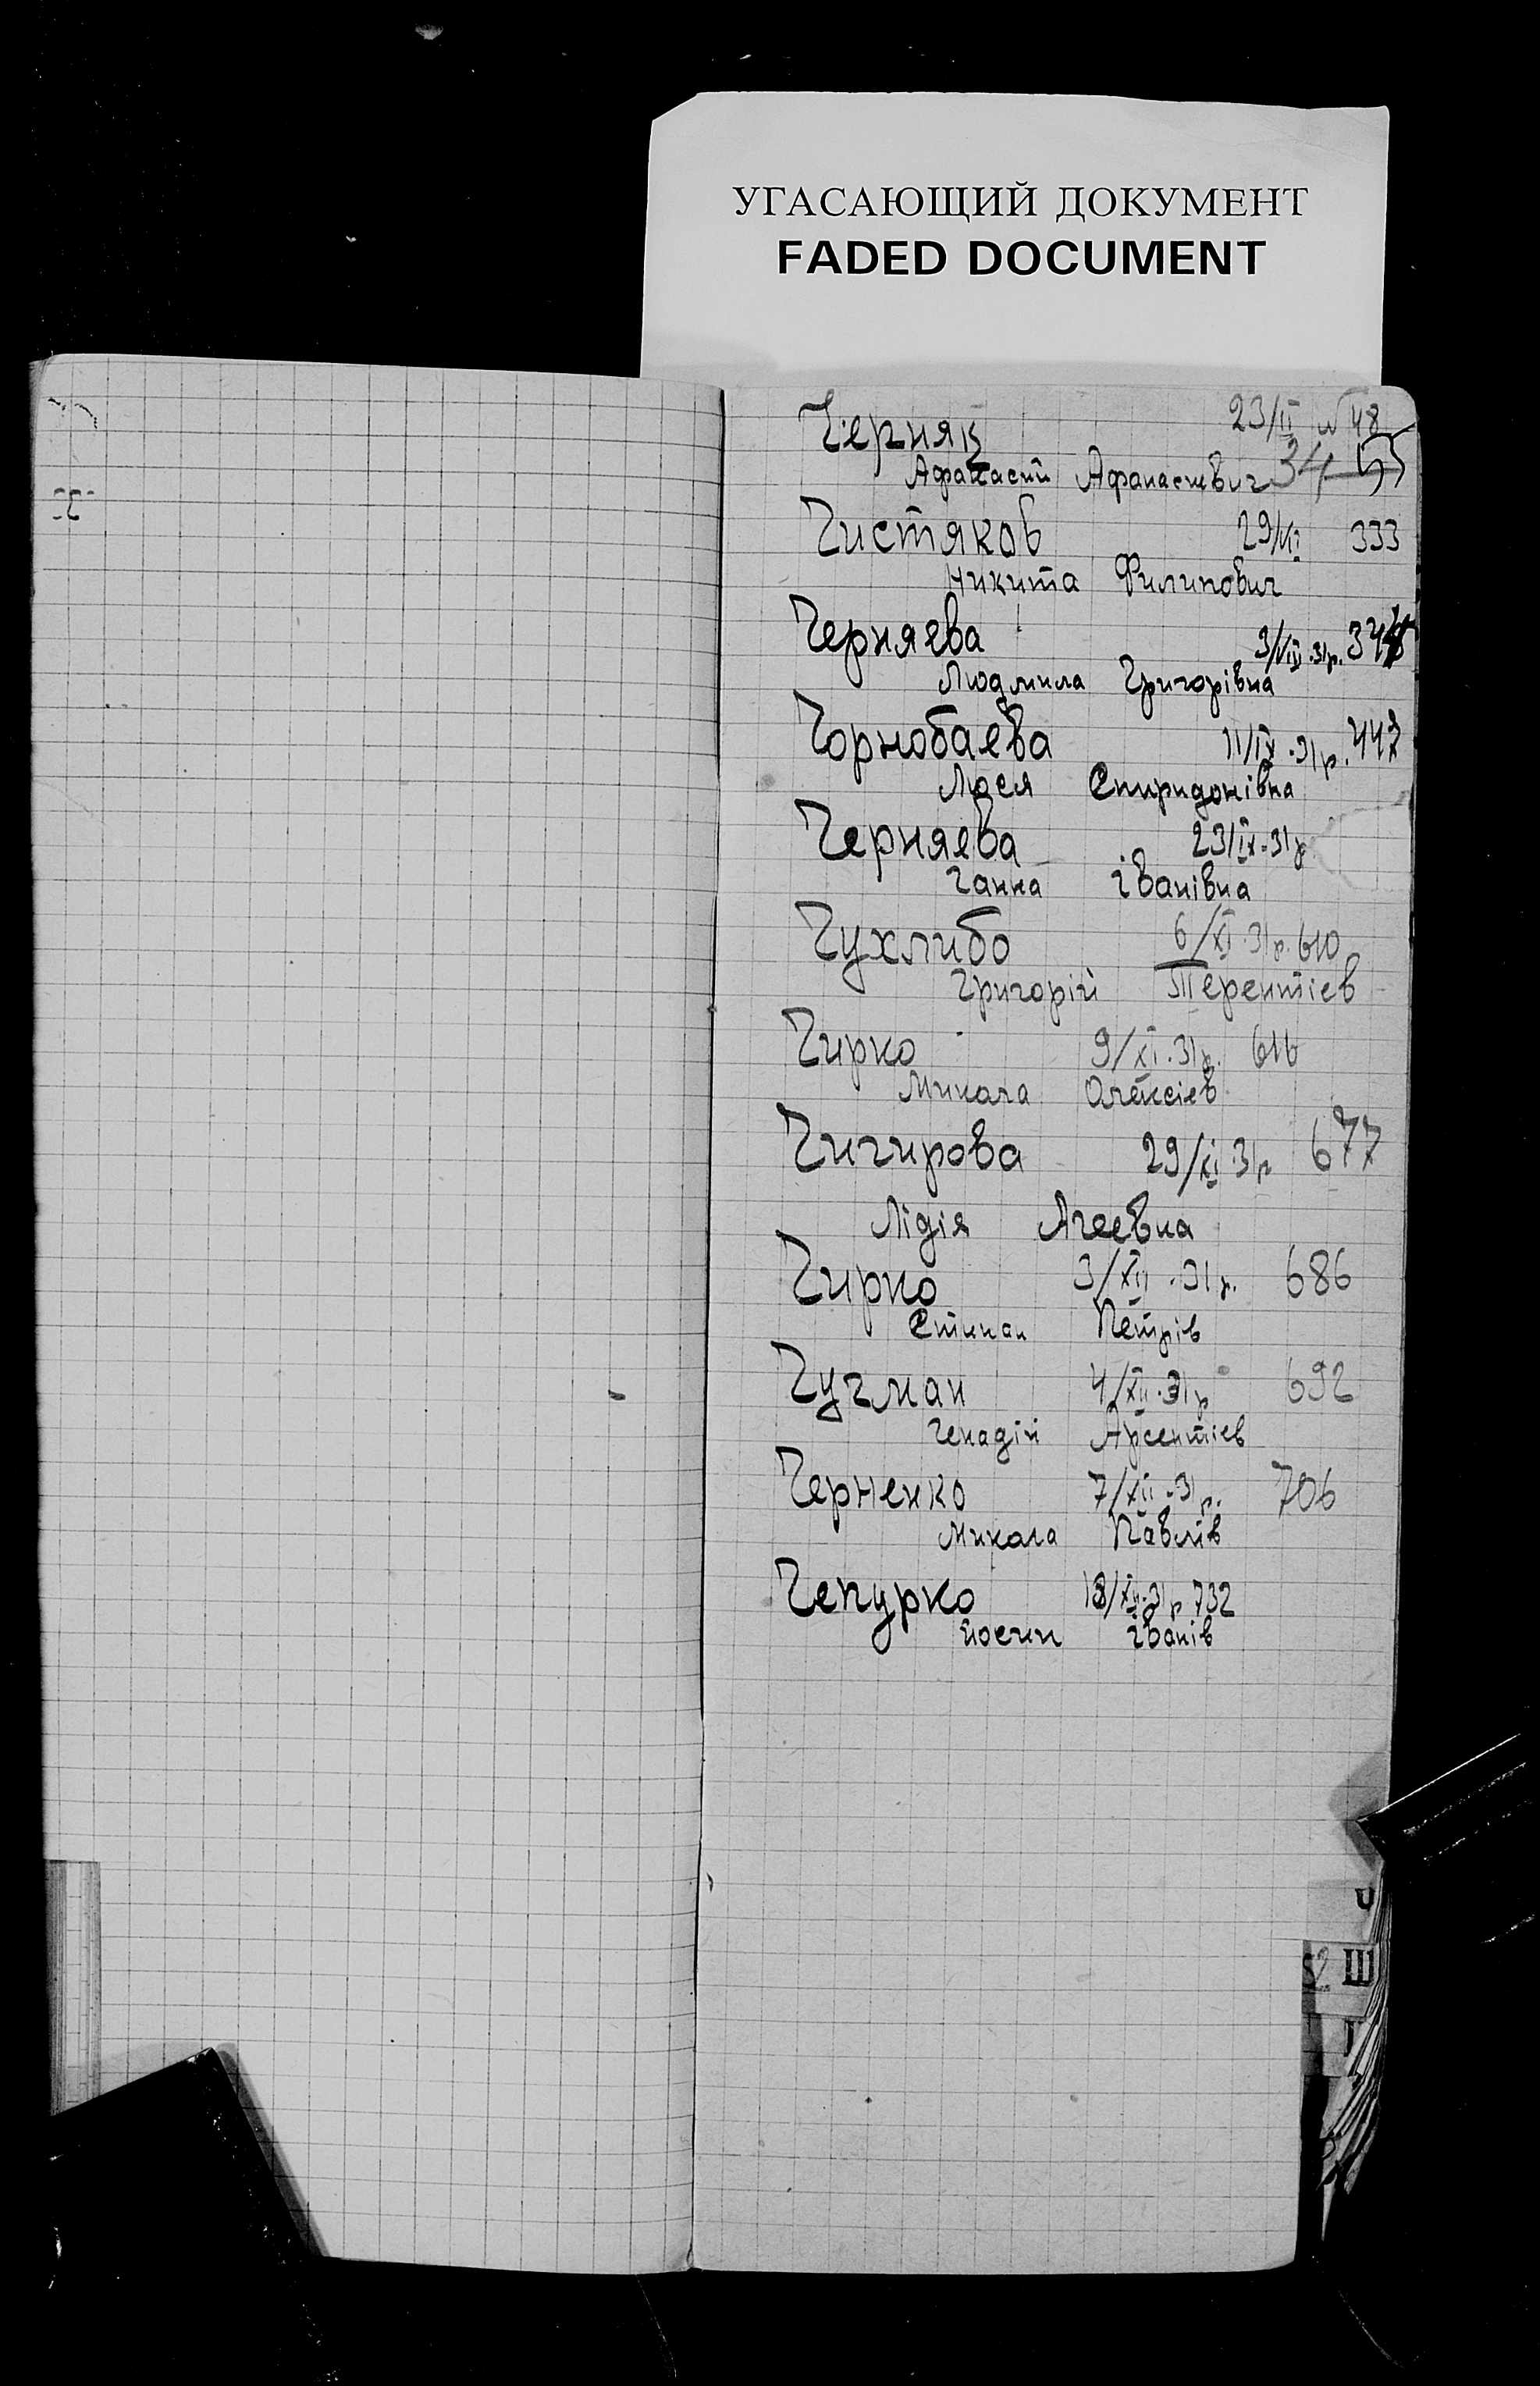 УГАСАЮЩИЙ ДОКУМЕНТ
FADED DOCUMENT
Черняк 23/II №48
Афанасий Афанасиевич 34
Чистяков 29/VI 333
Никита Филипович
Черняева 3/VIII.31р.
Людмила Григорівна
Чорнобаева 11/IX.31р. 447
Люся Спиридонівна
Черняева 23/IX.31р
Ганна Іванівна
Чухлибо 6/XI.31р. 610
Григорій Терентієв
Чирко 9/XI.31р. 616
Микола Олексієв
Чигирова 29/XI.3р 677
Лідія Агеевна
Чирко 3/XII.31р. 686
Степан Петрів
Чугман 4/XII.31р 692
Генадій Арсентієв
Черненко 7/XII.31р. 706
Микола Павлів
Чепурко 18/XII.31р 732
Йосип Іванів
52 Ш